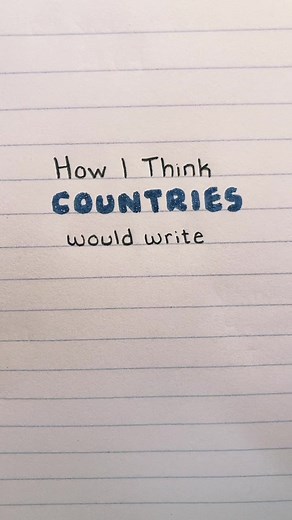 How I Think
COUNTRIES
would write